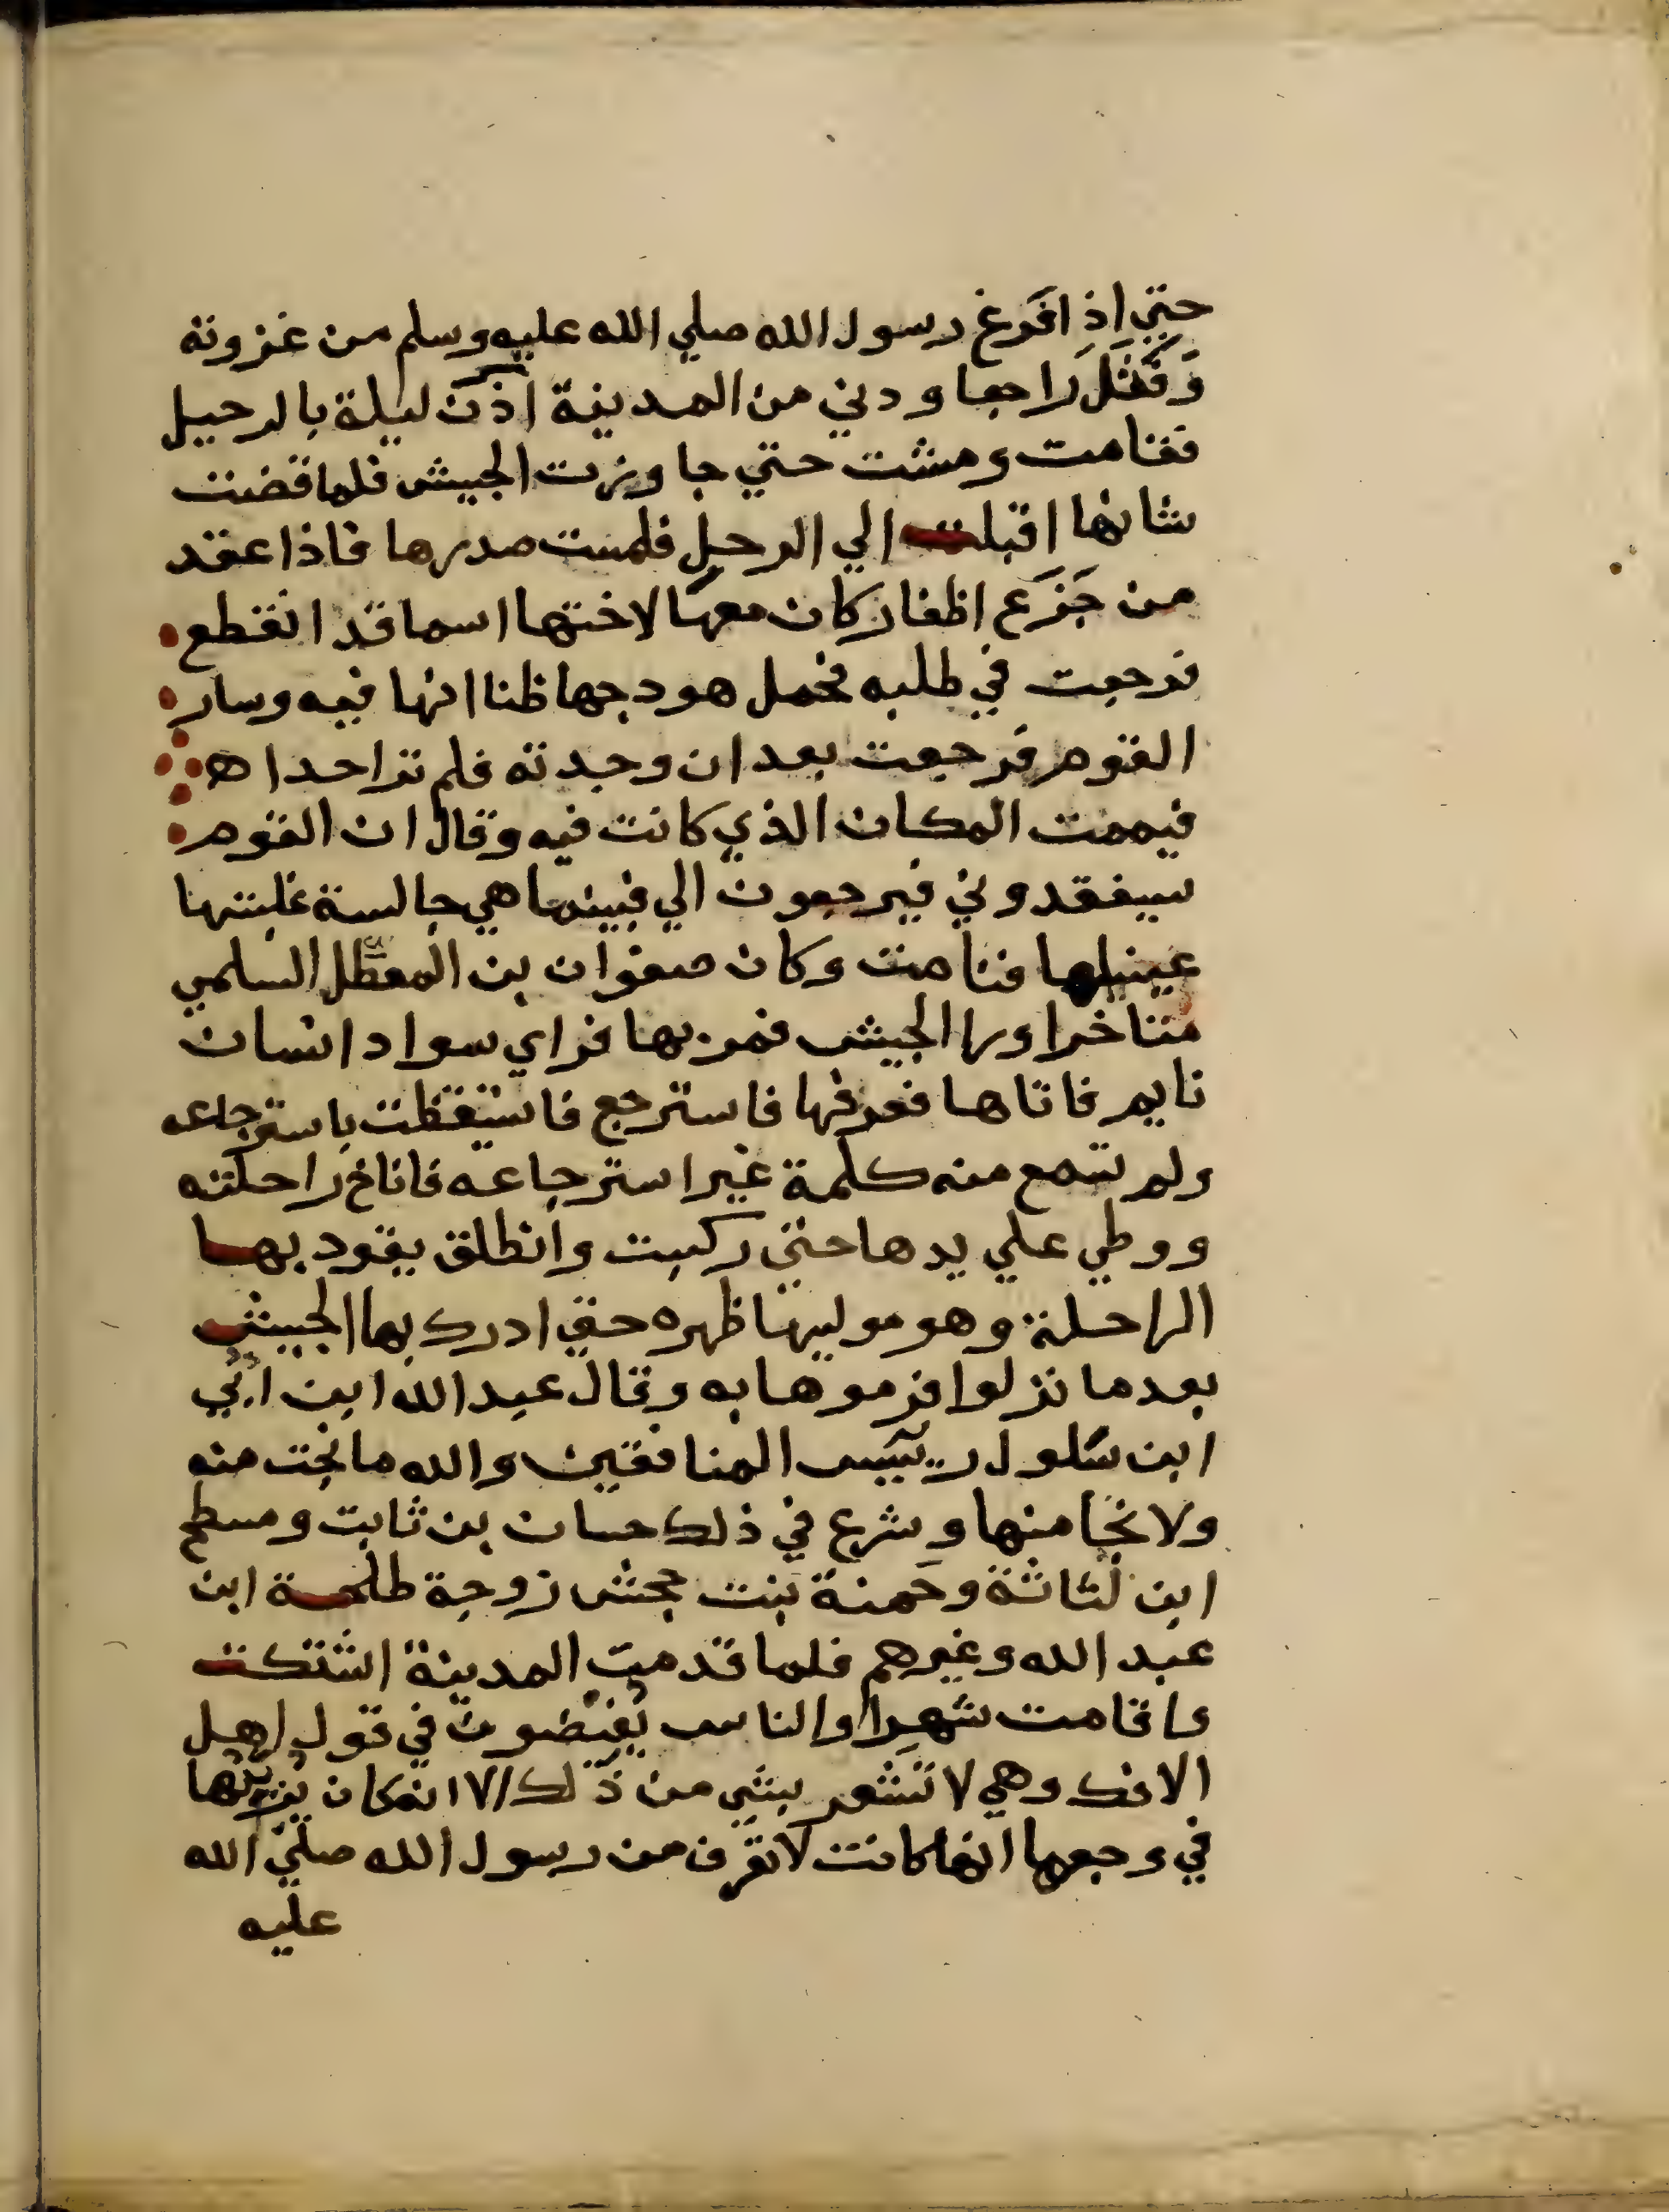 حتي اذِ افَرغ رسول الله صلي الله عليه وسلم من غزوته
وَقَفَلَ راجعا ودني من المدينة اذن ليلة بالرحيل
فقامت ومشت حتي جاوزت الجيش فلما قضت
شانها اقبلت الي الرحيل فلمست صدرها فاذا عقد
من جَزَع اظفار كان معها لاختها اسما قد انقطع
فرجعت في طلبه فحمل هودجها ظنا انها فيه وسار
القوم فرجعت بعد ان وجدته فلم تر احدا ه
فيممت المكان الذي كانت فيه وقال ان القوم
سيفقدوني فيرجعون الي فبينما هي جالسة غلبتها
عينها فنامت وكان صفوان بن المعطّل السلمي
متاخرا ورا الجيش فمر بها فراي سواد انسان
نايم فاتاها فعرفها فاسترجع فاستيقظت باسترجاعه
ولم تسمع منه كلمة غير استرجاعه فاناخ راحلته
ووطي علي يدها حتي ركبت وانطلق يقود بها
الراحلة وهو موليها ظهره حتي ادرك بها الجيش
بعد ما نزلوا فرموها به وقال عبد الله ابن ابُي
ابن سَلول رييس المنافقين والله ما نجت منه
ولا نجا منها وشرع في ذلك حسان بن ثابت ومسطح
ابن اثاثة وحمنة بنت جحش زوجة طلحة ابن
عبد الله وغيرهم فلما قدمت المدينة اشتكت
واقامت شهرا والناس يفيضون في قول اهل
الافك وهي لا تشعر بشي من ذلك الا انه كان يريبها
في وجعها انها كانت لا تعرف من رسول الله صلي الله
عليه